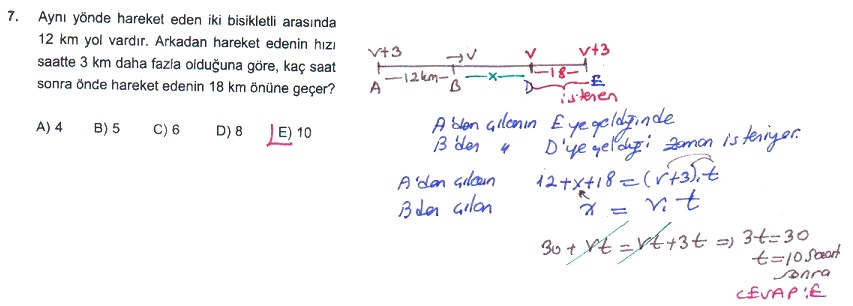 7. Aynı yönde hareket eden iki bisikletli arasında
12 km yol vardır. Arkadan hareket edenin hızı
saatte 3 km daha fazla olduğuna göre, kaç saat
sonra önde hareket edenin 18 km önüne geçer?
A) 4 B) 5 C) 6 D) 8 E) 10
V+3 →V V V+3
12km x 18
A B D E
isteren
A'dan çıkanın E ye geldiğinde
B'den " D'ye geldiği zaman isteniyor.
A'dan çıkan 12+x+18=(V+3).t
B den çıkan x = V. t
30 + Vt = Vt + 3t ⇒ 3t=30
t=10 saat
sonra
CEVAP:E